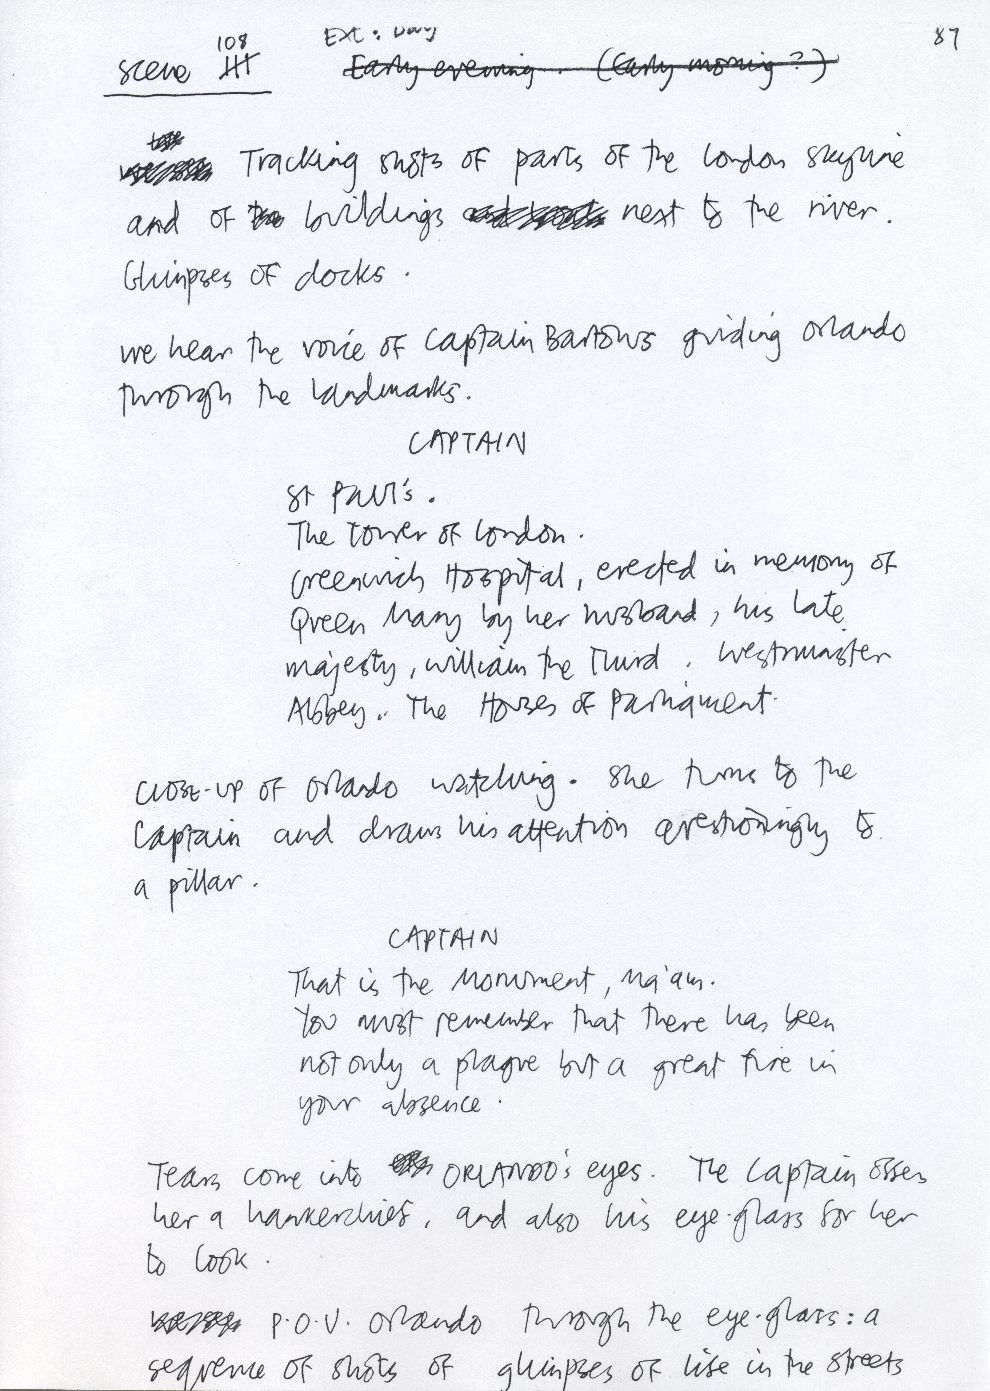 108 Ext. Day 87
Scene 111 Early evening. (Early morning?)
Tracking shots of parts of the London skyline
and of the buildings next to the river.
Glimpses of docks.
We hear the voice of Captain Bartolus guiding Orlando
through the landmarks.
CAPTAIN
St Paul's.
The Tower of London.
Greenwich Hospital, erected in memory of
Queen Mary by her husband, his late
majesty, William the Third. Westminster
Abbey. The Houses of Parliament.
Close-up of Orlando watching. She turns to the
Captain and draws his attention questioningly to
a pillar.
CAPTAIN
That is the Monument, Ma'am.
You must remember that there has been
not only a plague but a great fire in
your absence.
Tears come into ORLANDO's eyes. The Captain offers
her a hankerchief, and also his eye-glass for her
to look.
P.O.V. Orlando through the eye-glass: a
sequence of shots of glimpses of life in the streets